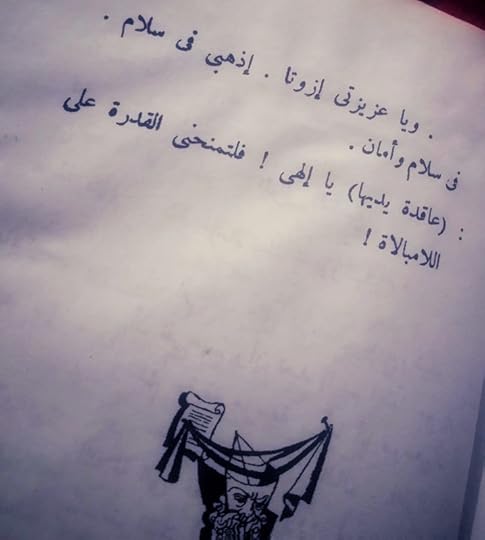 . ويا عزيزتى إزوتا . إذهبي فى سلام .
فى سلام وأمان .
: (عاقدة يديها) يا إلهى ! فلتمنحنى القدرة على
اللامبالاة !